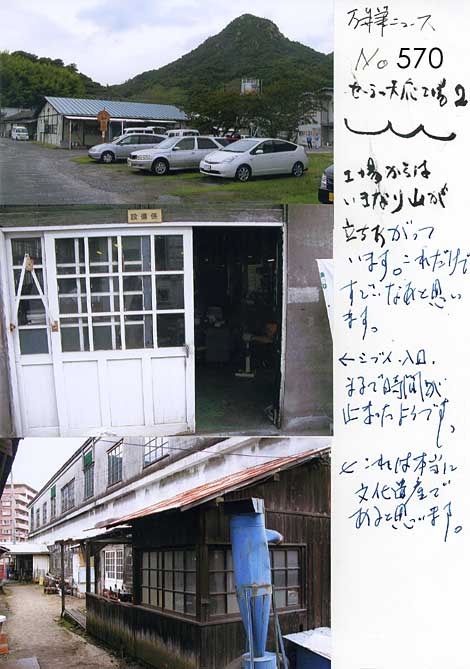 万年筆ニュース
No 570
セーラー天応工場2
工場からは
いきなり山が
立ちあがって
います。これだけで
すごいなあと思い
ます。
←シブイ入口。
まるで時間が
止まったようです。
←これは本当に
文化遺産で
あると思います。
設備係